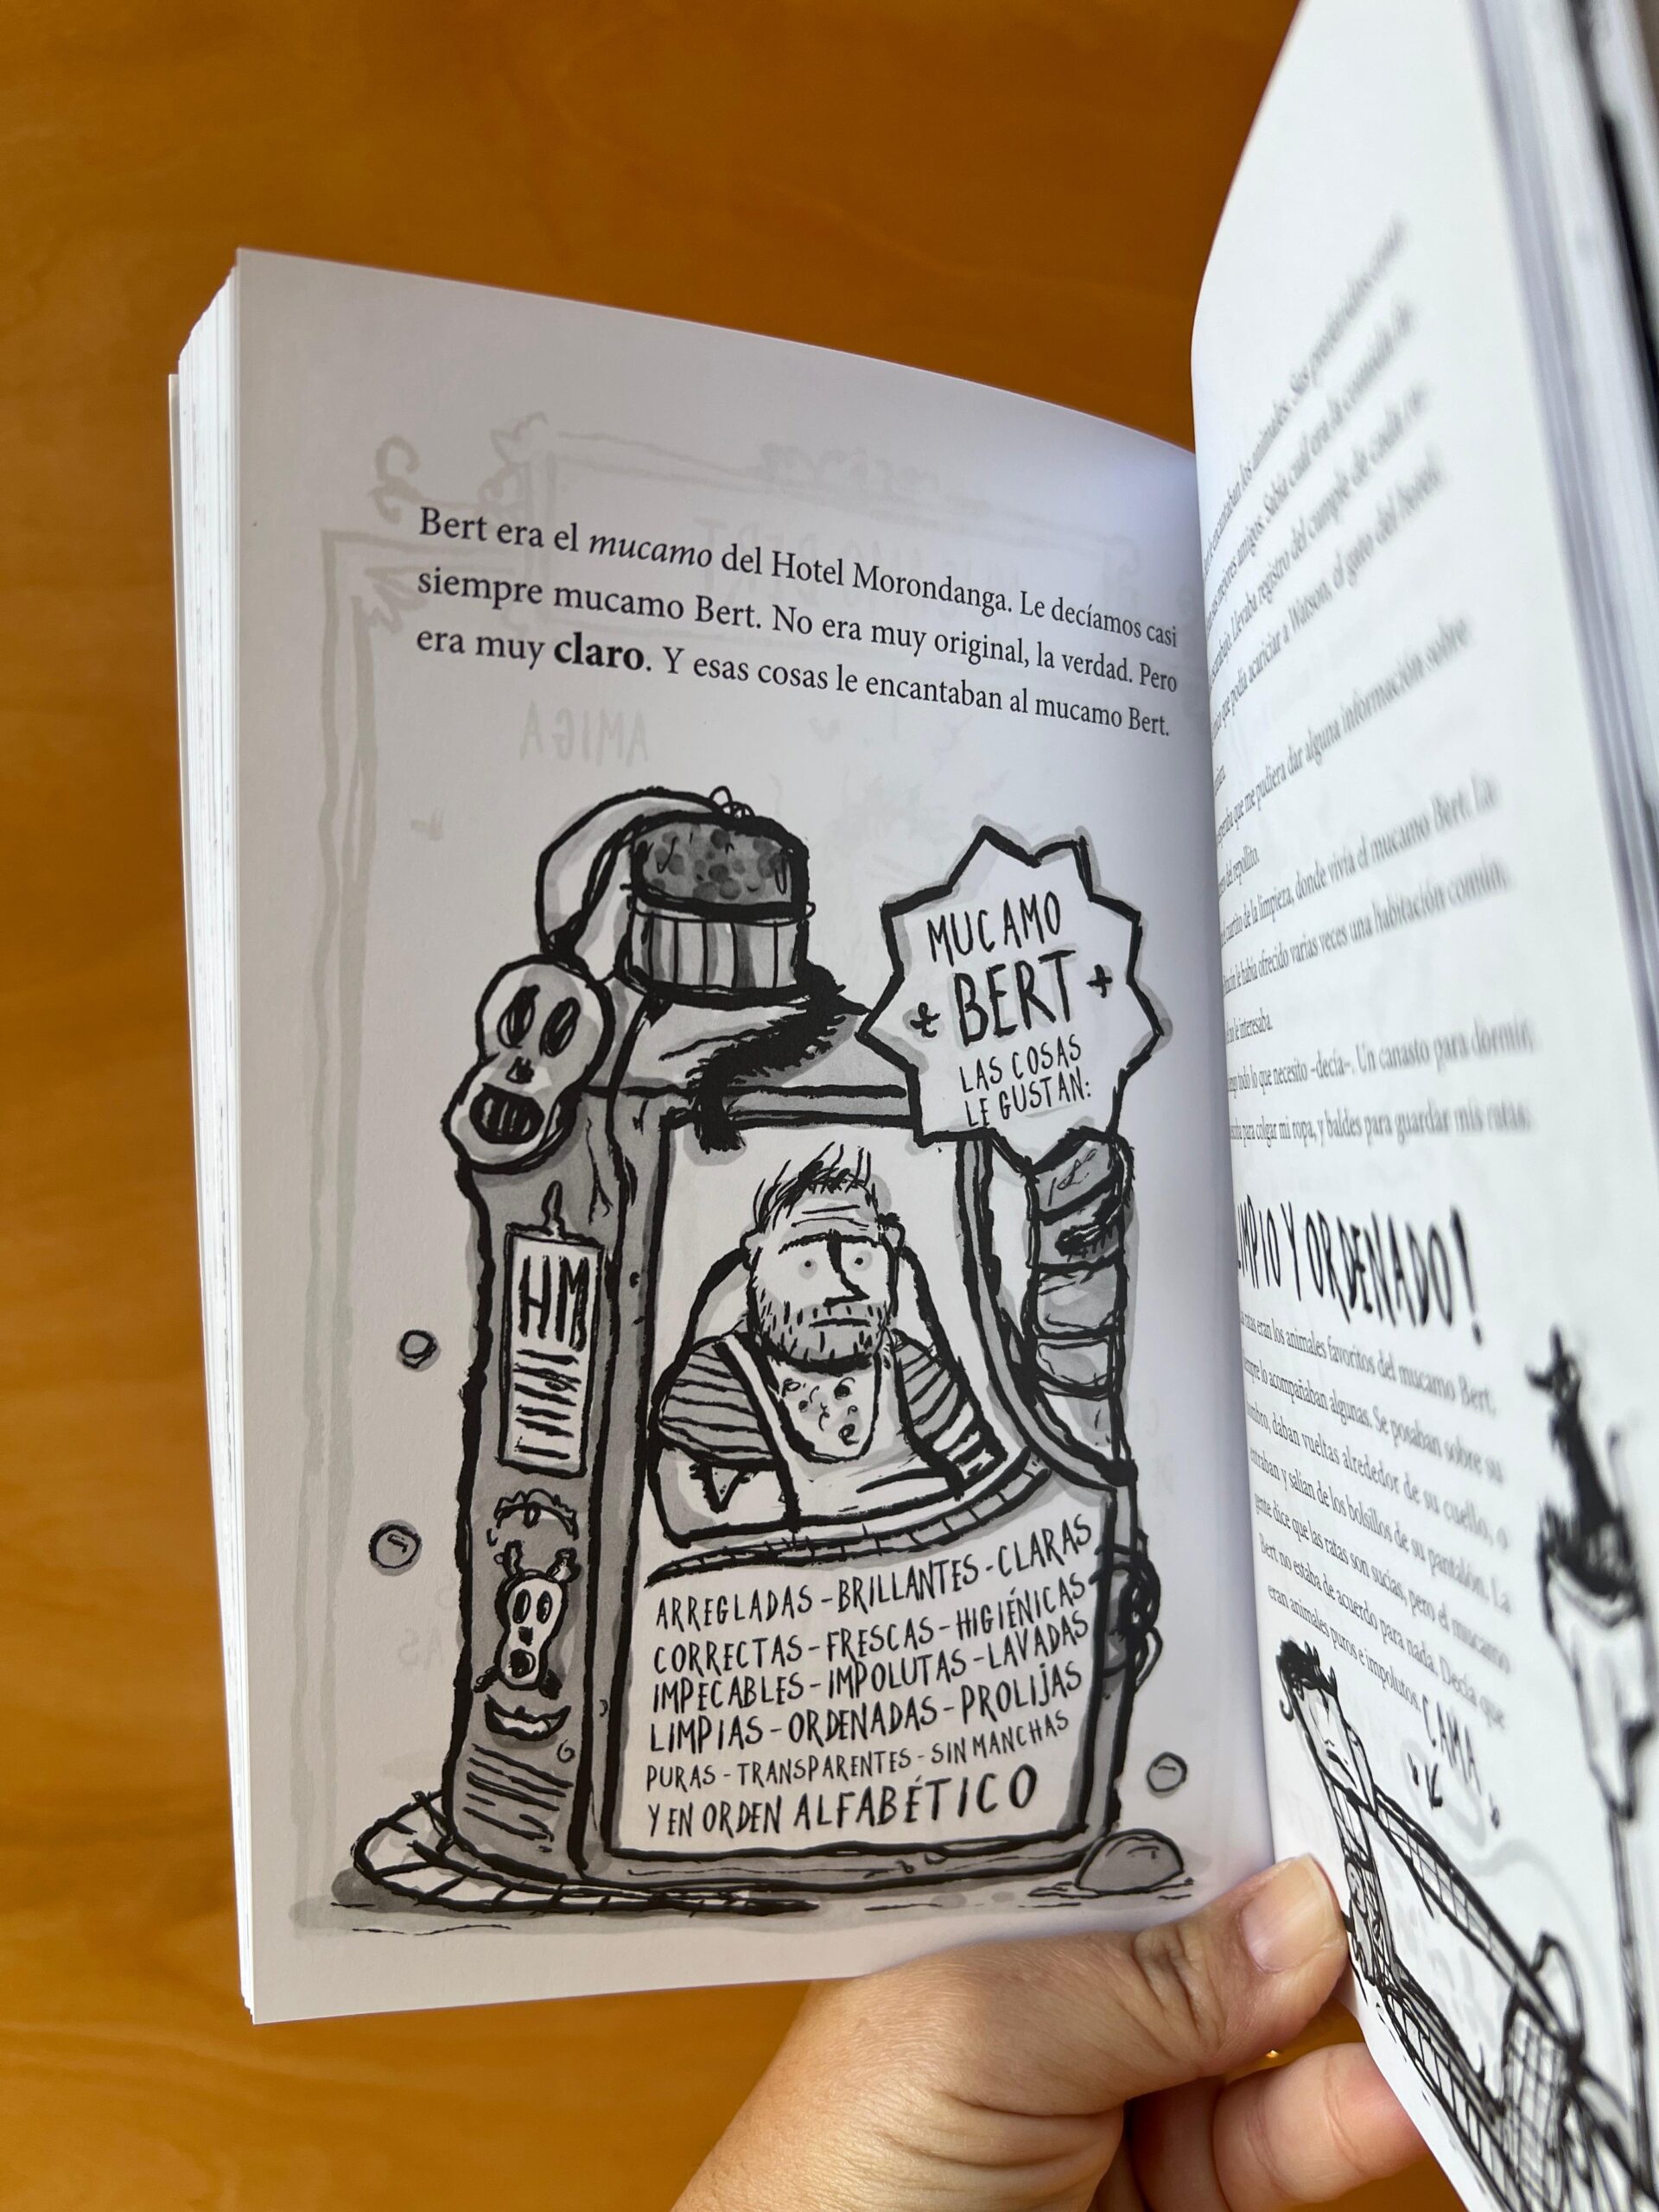 Bert era el mucamo del Hotel Morondanga. Le decíamos casi
siempre mucamo Bert. No era muy original, la verdad. Pero
era muy claro. Y esas cosas le encantaban al mucamo Bert.
MUCAMO
BERT
LAS COSAS
LE GUSTAN:
HM
ARREGLADAS - BRILLANTES - CLARAS
CORRECTAS - FRESCAS - HIGIÉNICAS
IMPECABLES - IMPOLUTAS - LAVADAS
LIMPIAS - ORDENADAS - PROLIJAS
PURAS - TRANSPARENTES - SIN MANCHAS
Y EN ORDEN ALFABÉTICO
los animales. Sus
mejores amigos. Sabía cuál era la comida de
Llevaba registro del cumple de cada
que podía acariciar a Watson, el gato del hotel.
que me pudiera dar alguna información sobre
del repollito.
de la limpieza, donde vivía el mucamo Bert. La
le había ofrecido varias veces una habitación común,
le interesaba.
todo lo que necesito –decía–. Un canasto para dormir,
para colgar mi ropa, y baldes para guardar mis ratas.
Y ORDENADO!
ratas eran los animales favoritos del mucamo Bert.
lo acompañaban algunas. Se posaban sobre su
daban vueltas alrededor de su cuello, o
entraban y salían de los bolsillos de su pantalón. La
gente dice que las ratas son sucias, pero el mucamo
Bert no estaba de acuerdo para nada. Decía que
eran animales puros e impolutos.
CAMA